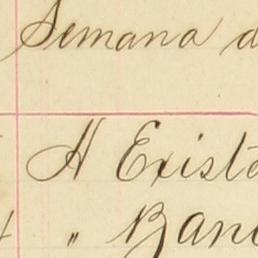 Semana d
A Exist
" Banc